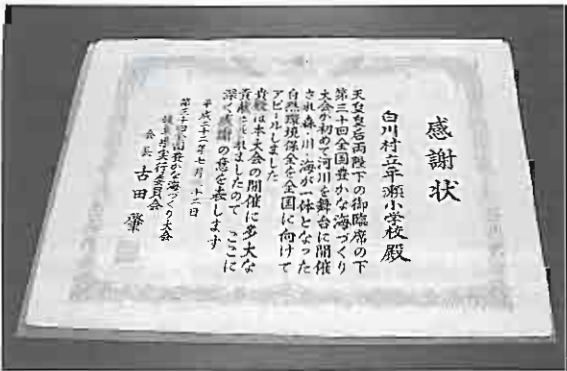 感謝状
白川村立平瀬小学校殿
天皇皇后両陛下の御臨席の下
第三十回全国豊かな海づくり
大会が初めて河川を舞台に開催
され森・川・海が一体となった
自然環境保全を全国に向けて
アピールしました
貴校は本大会の開催に多大な
貢献をされましたので ここに
深く感謝の意を表します
平成二十二年七月 十二日
第三十回全国豊かな海づくり大会
岐阜県実行委員会
会長 古田 肇